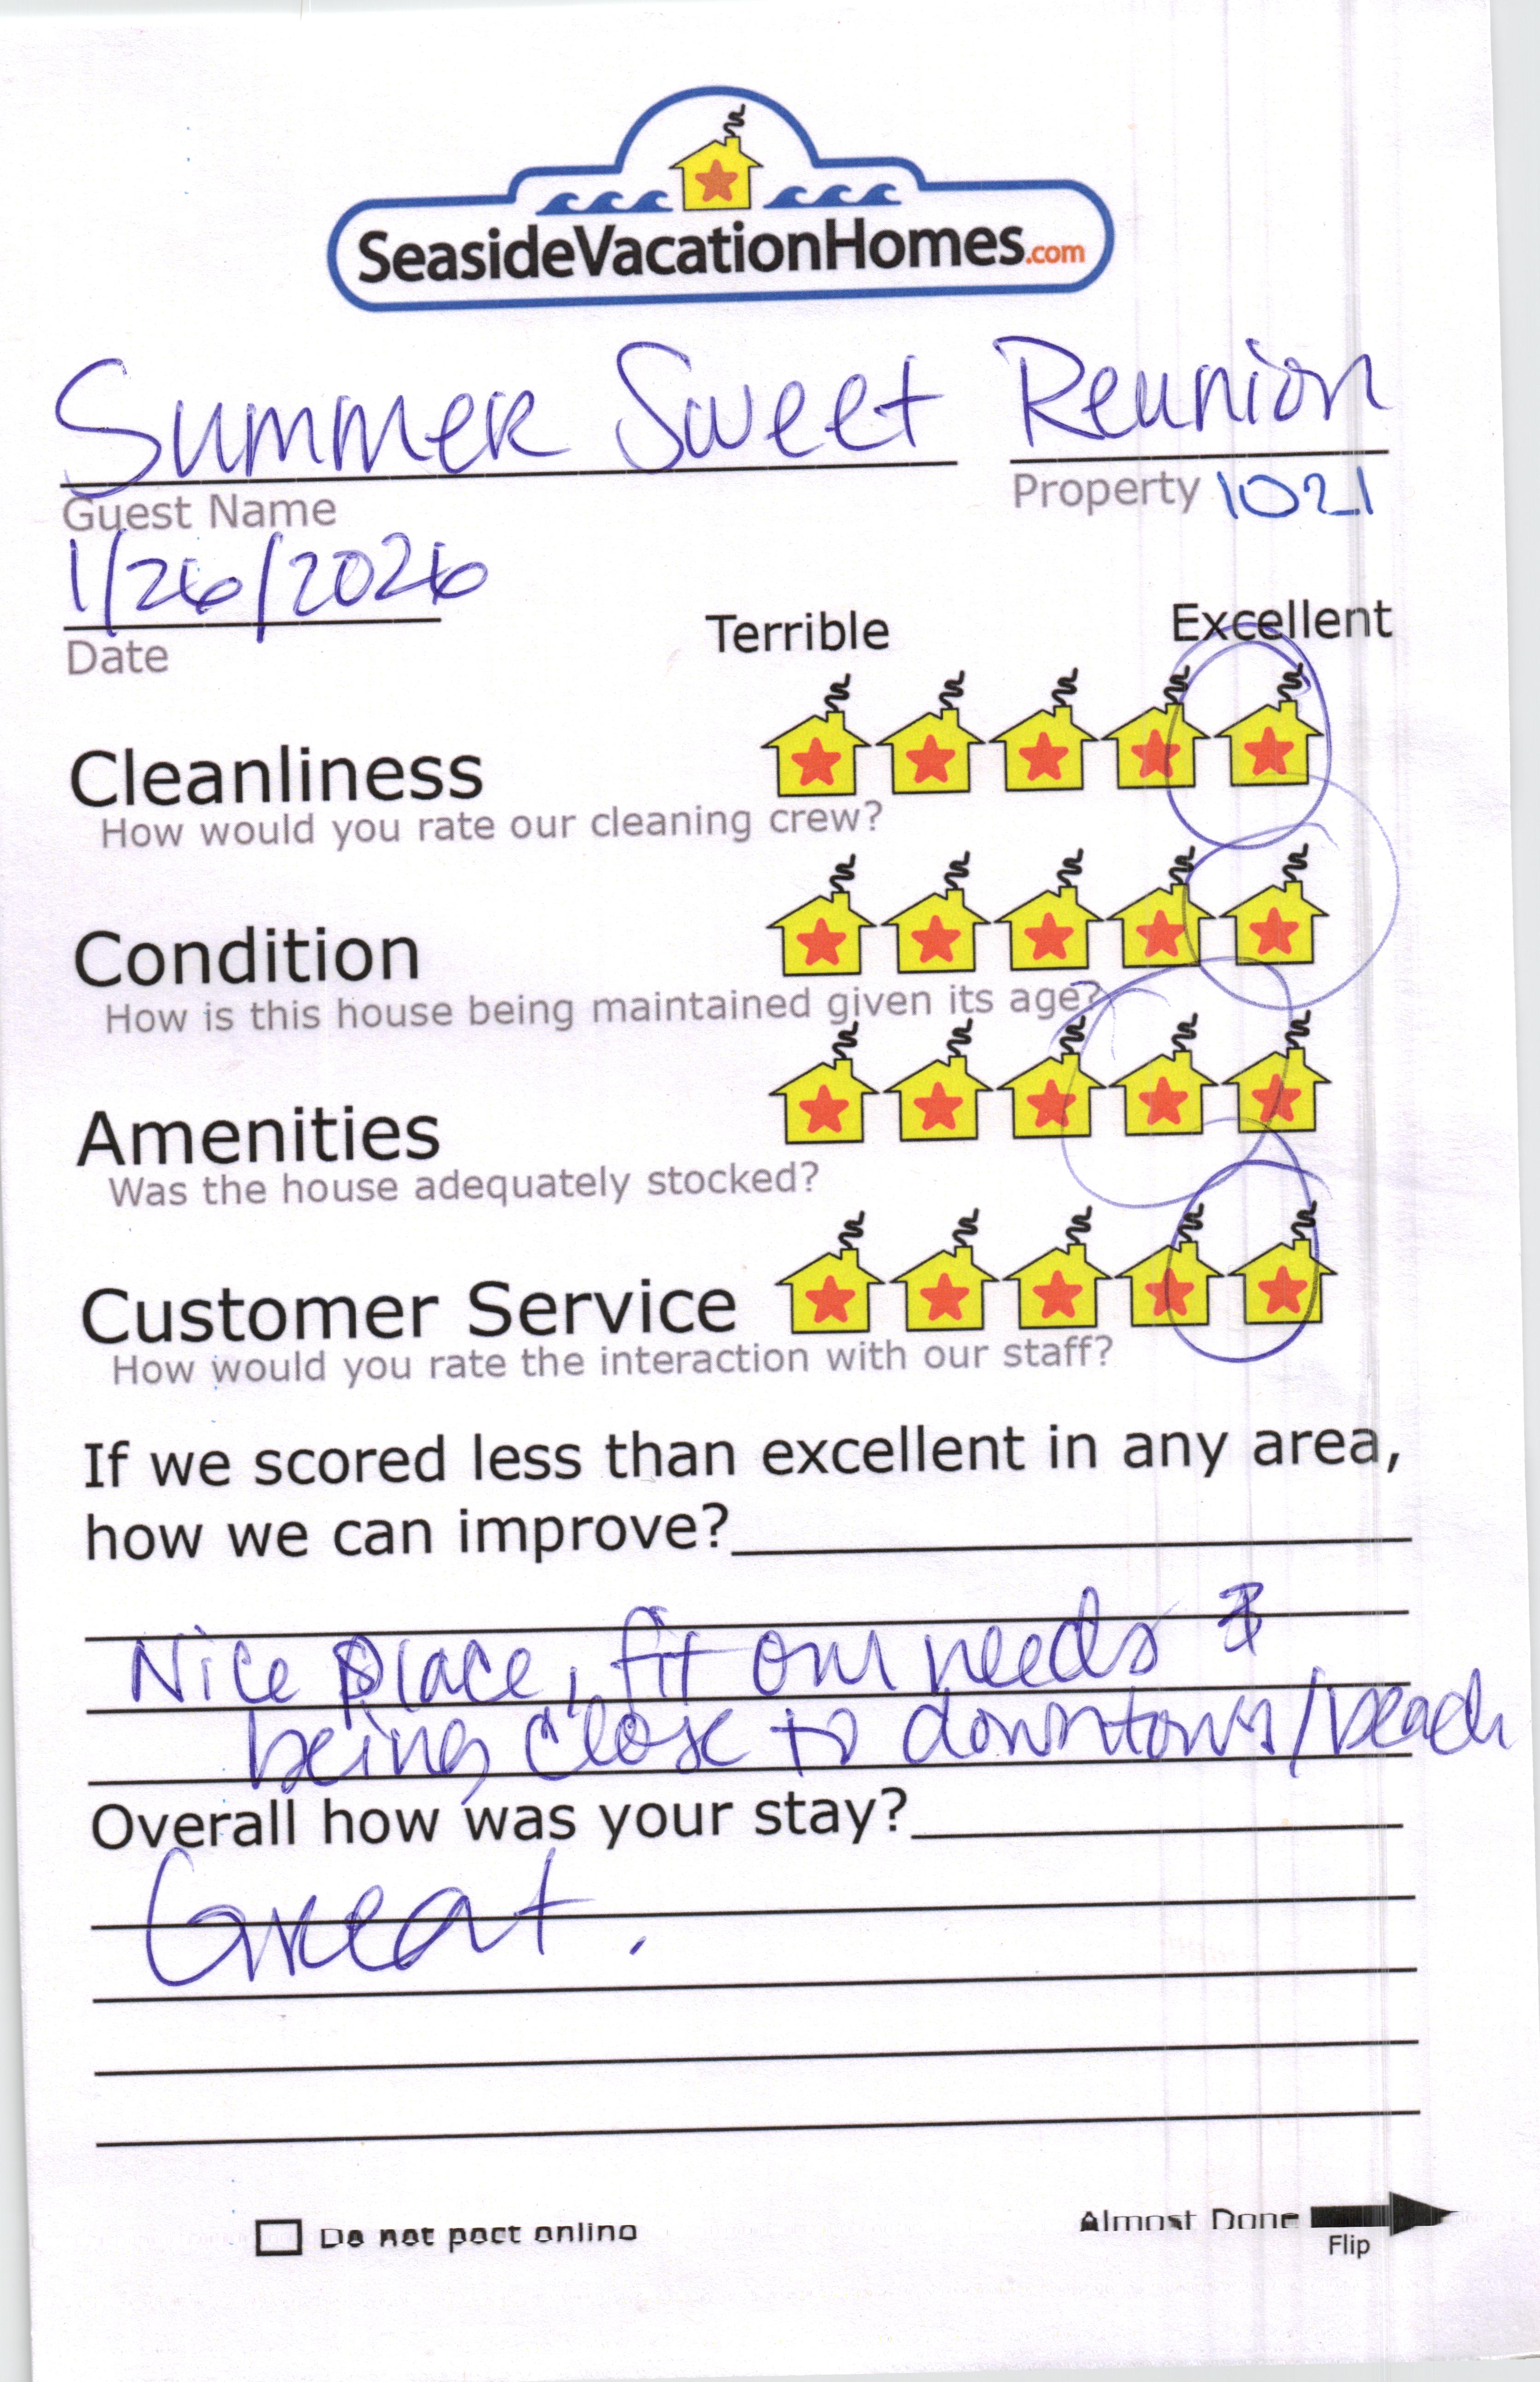 SeasideVacationHomes.com
Summer Sweet Reunion
Guest Name Property 1021
1/26/2026
Date
Terrible Excellent
Cleanliness
How would you rate our cleaning crew?
Condition
How is this house being maintained given its age?
Amenities
Was the house adequately stocked?
Customer Service
How would you rate the interaction with our staff?
If we scored less than excellent in any area,
how we can improve?
Nice place, fit our needs &
being close to downtown/beach
Overall how was your stay?
Great.
Do not post online
Almost Done
Flip